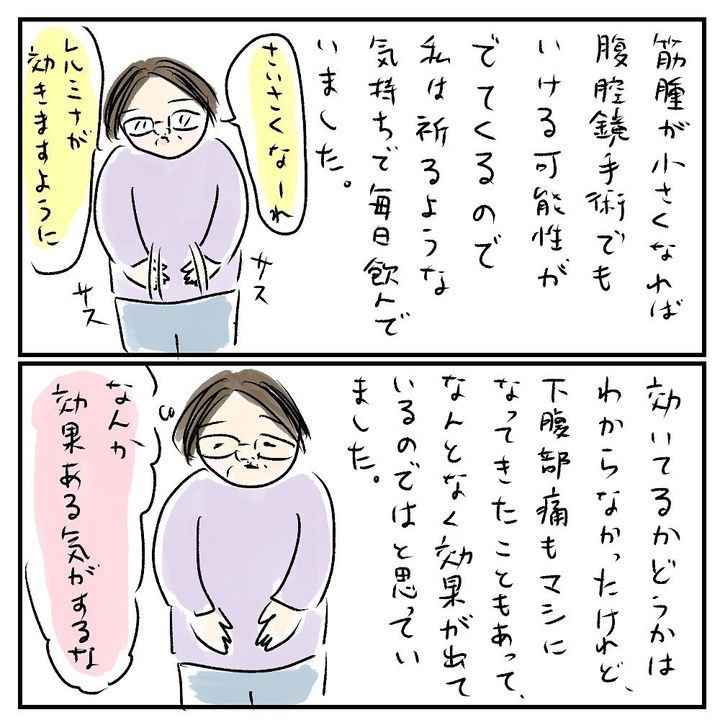 筋腫が小さくなれば
腹腔鏡手術でも
いける可能性が
でてくるので
私は祈るような
気持ちで毎日飲んで
いました。
さいさくなーれ
レルミナが
効きますように
サス
サス
効いてるかどうかは
わからなかったけれど、
下腹部痛もマシに
なってきたこともあって、
なんとなく効果が出て
いるのではと思ってい
ました。
なんか
効果ある気がするな